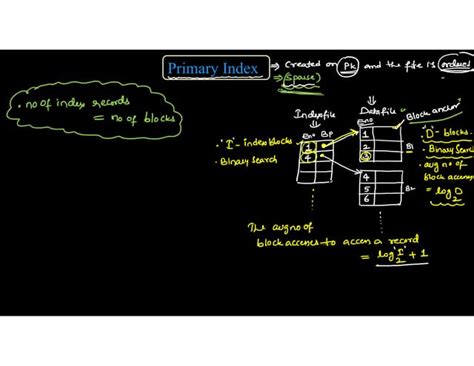 Primary Index ⇒ Created on PK and the file is ordered
⇒ (Sparse)
• no of index records
= no of blocks
Indexfile
Eno BP
1
4
• "I" - Index blocks
• Binary Search
Datafile
Eno
1
2
3
B1
4
5
6
B2
Block anchor
• "D" - blocks
• Binary Search
• avg no of
block accesses
= log D
2
The avg no of
block accesses to access a record
= log "I" + 1
2